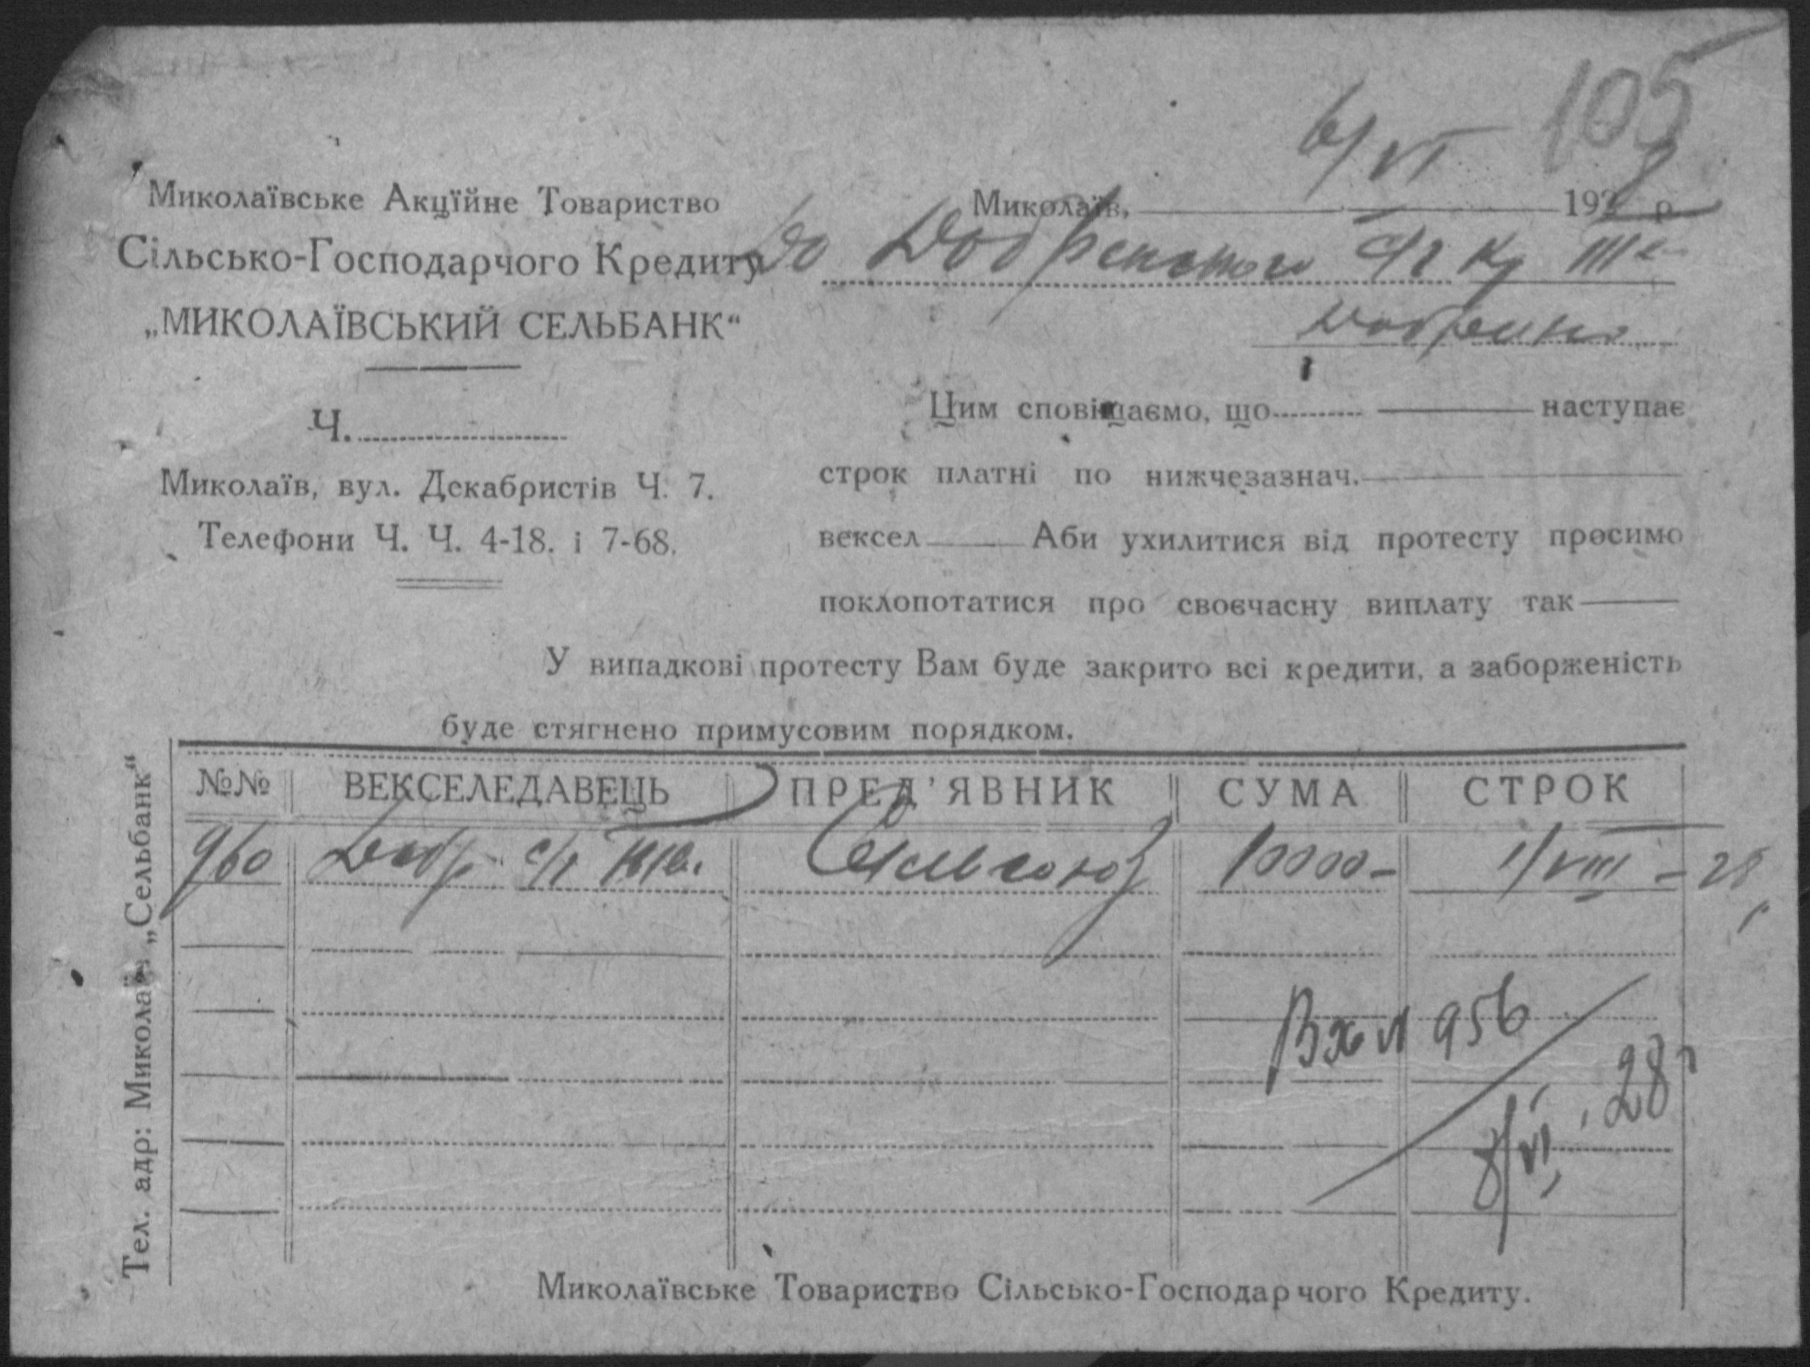 105
6/VI
Миколаївське Акційне Товариство
Сільсько-Господарчого Кредиту
„МИКОЛАЇВСЬКИЙ СЕЛЬБАНК“
Ч.
Миколаїв, вул. Декабристів Ч. 7.
Телефони Ч. Ч. 4-18. і 7-68.
Миколаїв, 1928 р.
До Добренського с/г Кр
Добрено
Цим сповіщаємо, що наступає
строк платні по нижчезазнач.
вексел Аби ухилитися від протесту просимо
поклопотатися про своєчасну виплату так
У випадкові протесту Вам буде закрито всі кредити, а заборженість
буде стягнено примусовим порядком.
Тел. адр: Миколаїв „Сельбанк“
№№ ВЕКСЕЛЕДАВЕЦЬ ПРЕД’ЯВНИК СУМА СТРОК
960 Добр. с/г Сільсоюз 10000- 1/VIII-28
Вх № 956
8/VI 28 г
Миколаївське Товариство Сільсько-Господарчого Кредиту.